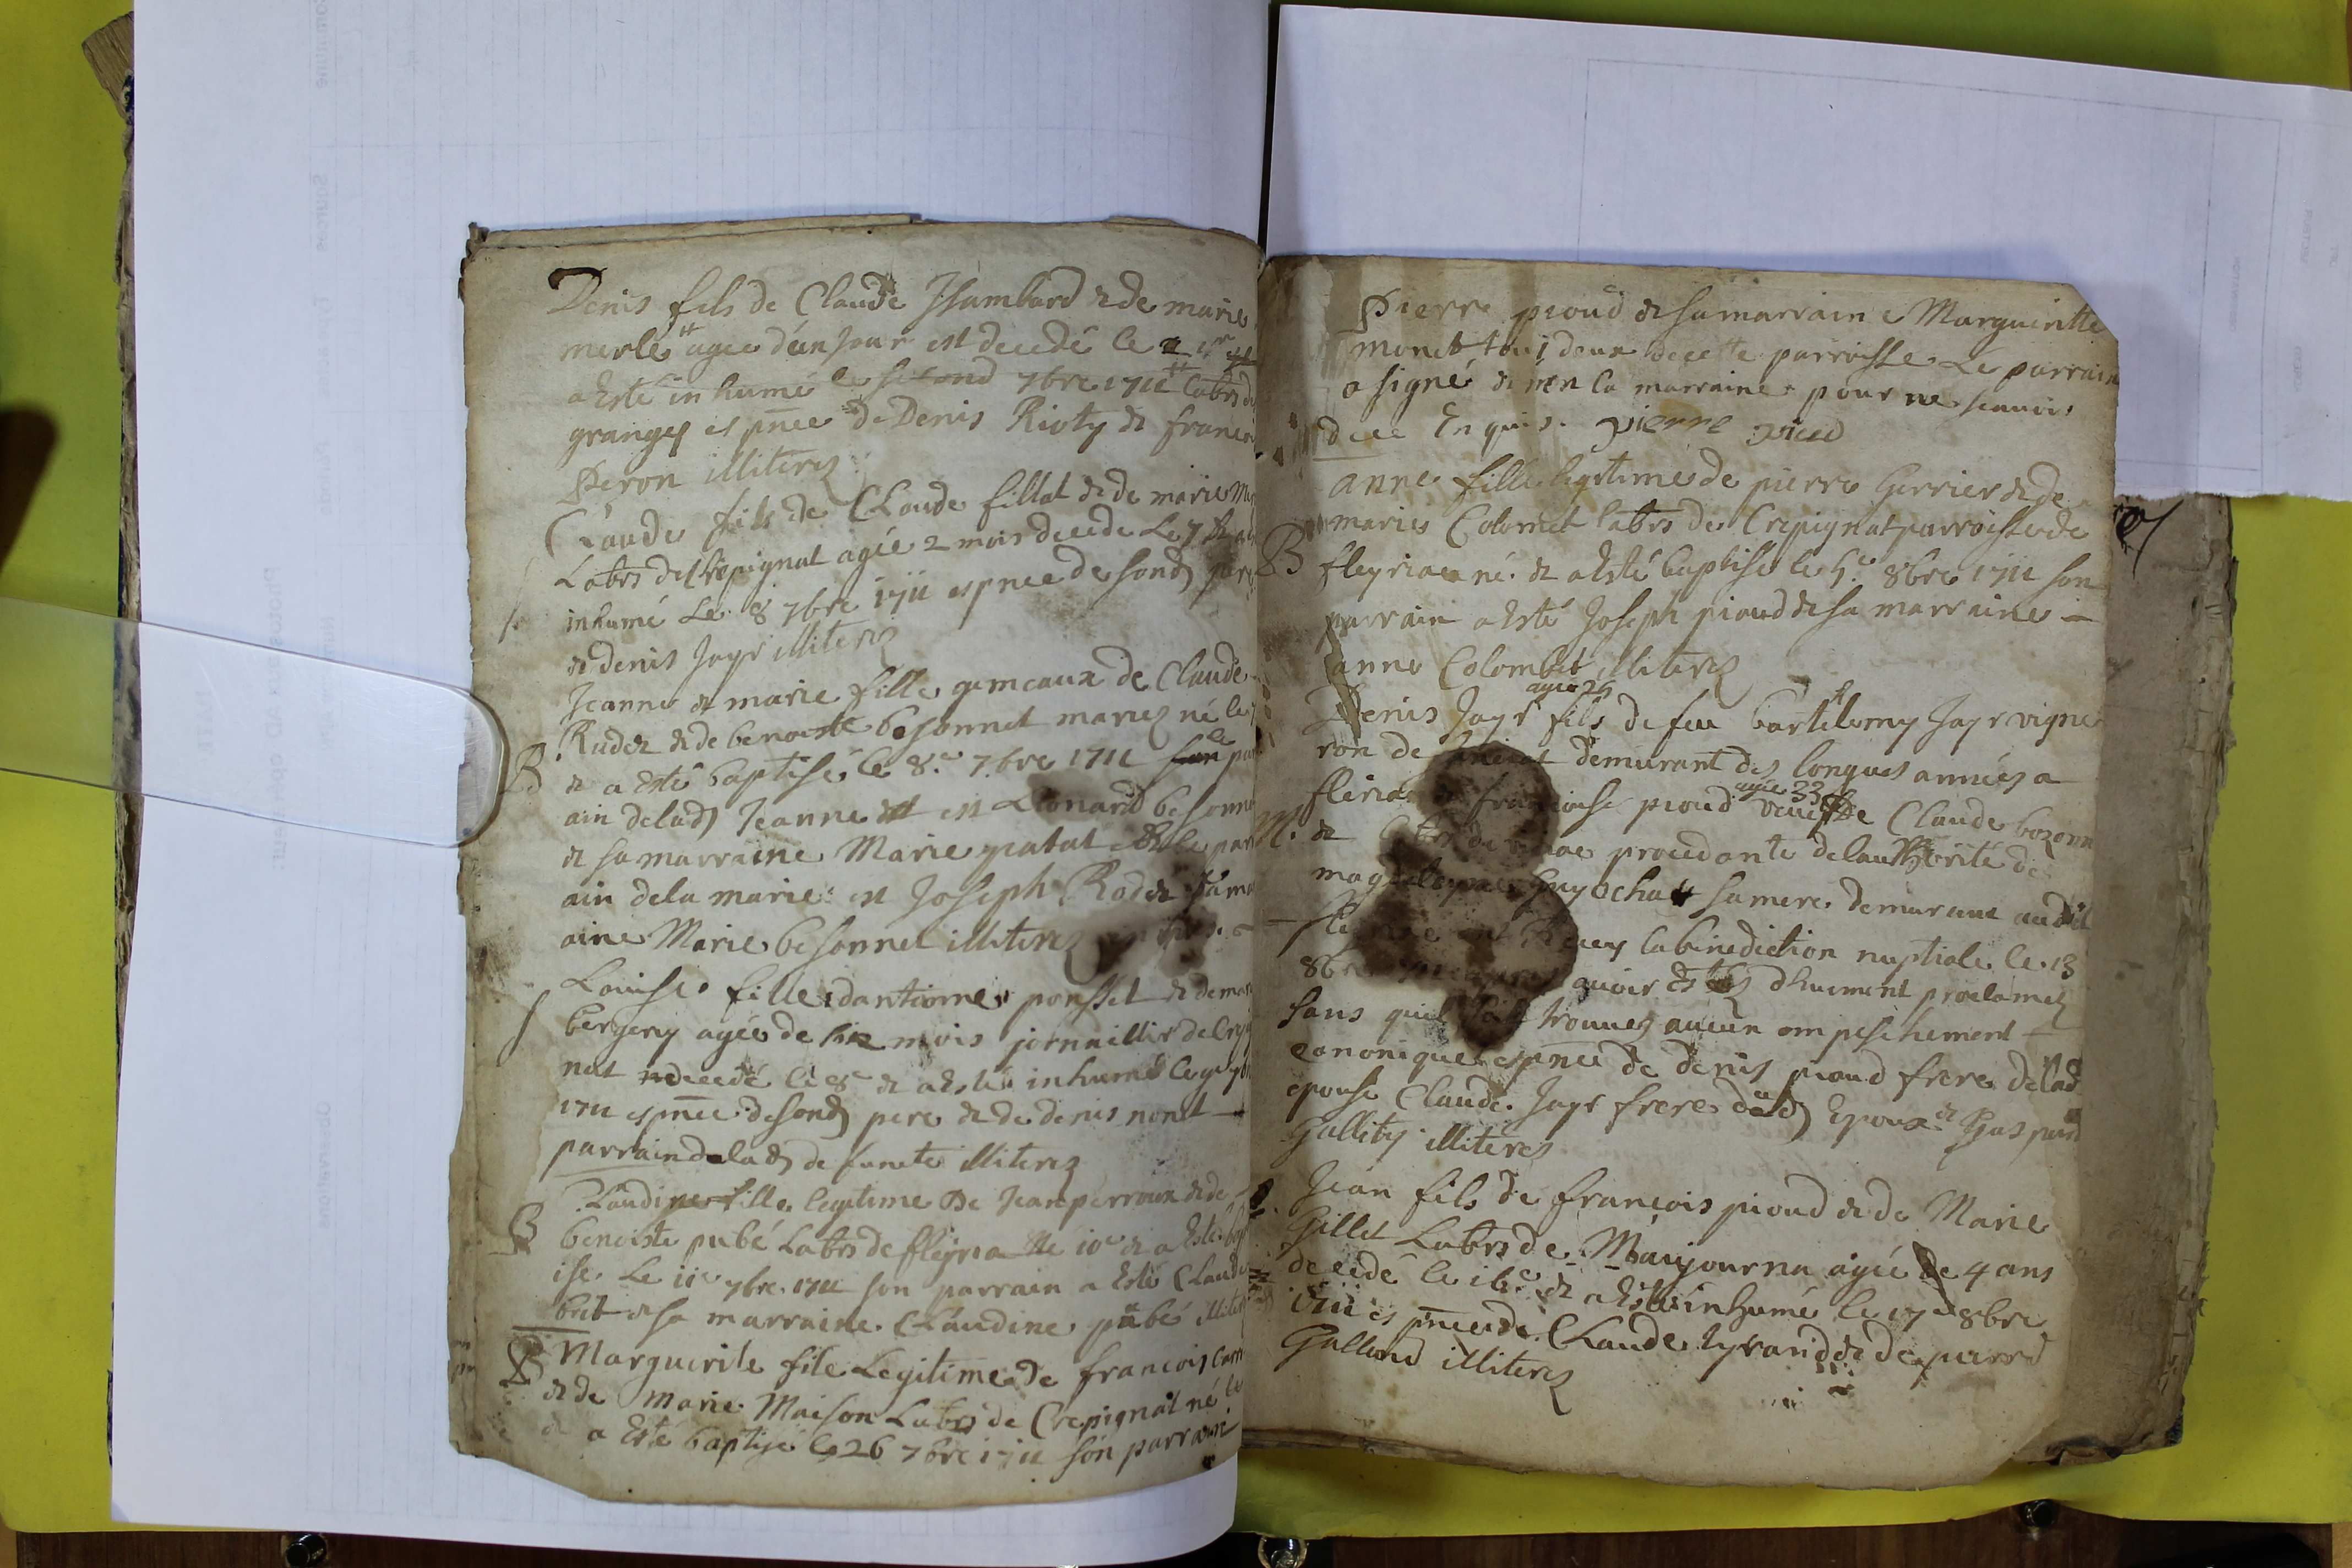 Denis fils de Claude Jsambard & de marie
merlé agée d'un Jour est decedé le
a Esté inhumé le second 7bre 1711 labrs de
granges es pnce de Denis Rioty & francoi
Peron illiterez
Claude fils de CLaude fillat & de marie
Labrs de Crepignat agée 2 mois decede Le 7
inhumé Le 8 7bre 1711 es pnce de sond pere
& denis Jayr illiterez
Jeanne & marie fille gemeaux de Claude
Rudez & de benoiste besonnet mariez né le
B & a Esté baptisé le 8.e 7bre 1711 le par
ain delad Jeanne est Leonard besonne
& sa marraine Marie patat & le parr
ain de la marie est Joseph Rodez
aine Marie besonnet illiterez
Louise fille dantiome ponsset & de mar
bergery agée de six mois jornaillier de Crepi
nat decedé le 8e & a esté inhumé le 9 7br
1711 es pnce de sond pere & de denis nonet
parrain de lad de functe illiterez
Claudine fille legitime De Jean perroux & de
B benoiste pubé Labrs de fleyria né 10e & a Esté bap
ise Le 11e 7bre 1711 son parrain a Esté Claude
but & sa marraine CLaudine pubé illiter
B Marguerite file Legitime de francois Carr
& de Marie Maison Labrs de Crepignat né le
& a Esté baptisé le 26 7bre 1711 son parraine
Pierre pioud & sa marraine Marguiritte
monet tous deux de cette parroisse Le parrain
a signé & non la marraine pour ne scauoir
de ce Enquis. pierre pioud
anne fille legitime de pierre Gerrier & de
marie Colomet labrs de Crepignat parroisse de
B fleyria né & a Esté baptisé le 5.e 8bre 1711 son
parrain a Esté Joseph pioud & sa marraine
anne Colombet illiterez
agée 26
Denis Jayr fils de feu bartelemy Jayr vigne
ron de demurant des longues années a
agée 33
fleria francoise pioud veuve De Claude bozonn
M. & procedante de lautthorité de
magdeleyne Guyochat sa mere demurant audit
receu la benediction nuptiale le 13
8bre avoir Esté dhuement proclamez
sans quil trouuez aucun ompeschement
canonique es pnce de denis pioud frere de lad
epouse Claude Jayr frere dud Epoux & Gaspard
Gallity illiteres
Jean fils de francois pioud & de Marie
Gillet Labrs de Maujourna agée de 4 ans
decedé le 16e & a Esté inhumé le 17 8bre
1711 es pnce de CLaude tyrand & de pierre
Galland illiterez